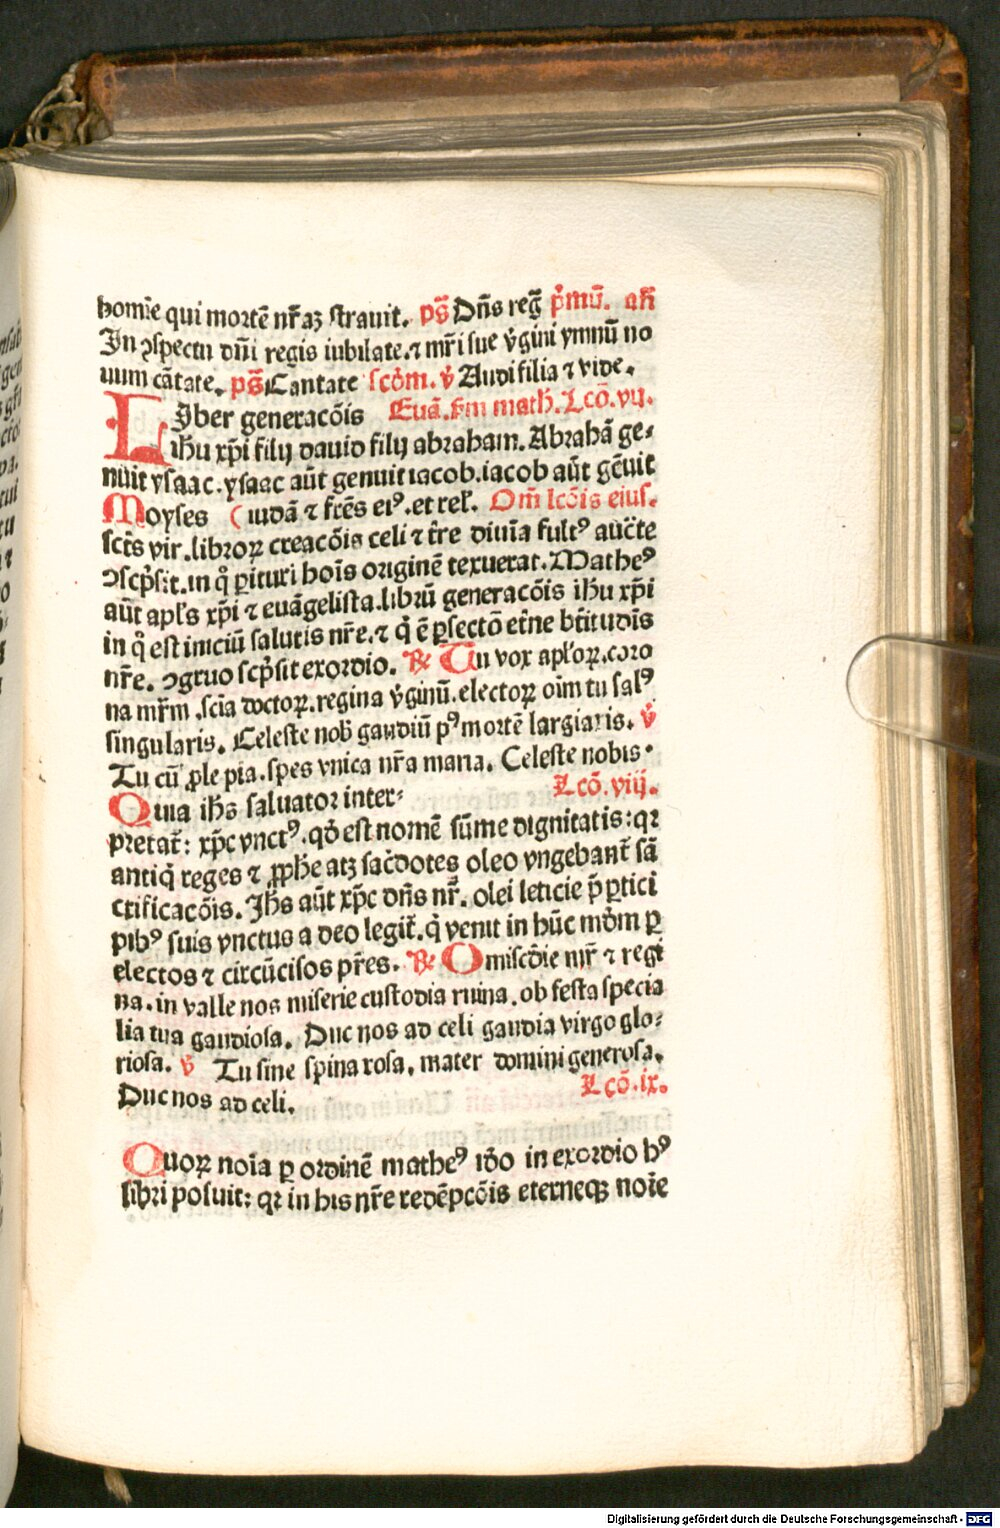 homīe qui mortē nr̄aꝫ strauit. pš Dn̄s reg̃ p̓mū. an̄
In ꝯspectu dn̄i regis iubilate.⁊ mr̄i sue v̓gini ymnū no
uum cātate. pš Cantate scđm. v̓ Audi filia ⁊ vide.
LIber generacōis Euā. ẜm math. Lcō. vij.
ihū xp̄i filij dauid filij abraham. Abrahā ge⸗
nuit ysaac. ysaac aūt genuit iacob. iacob aūt gēuit
Moyses ( iudā ⁊ fr̄es eiꝰ. et rel̄. Om̄ lc̄ōis eius.
sct̄s vir. libroꝝ creacōis celi ⁊ tr̄e diuīa fultꝰ auct̄e
ꝯscp̄sit. in q̊ ꝑituri hoīs originē texuerat. Matheꝰ
aūt apl̄s xp̄i ⁊ euāgelista. librū generacōis ihū xp̄i
in q̊ est iniciū salutis nr̄e. ⁊ q̓ ē ꝑfectō et̄ne bt̄itudīs
nr̄e. ꝯgruo scp̄sit exordio. ℟ Tu vox apl̓oꝝ. coro
na mr̄m .scīa doctoꝝ. regina v̓ginū. electoꝝ oīm tu salꝰ
singularis. Celeste nob̄ gaudiū pꝰ mortē largiaris. v̓
Tu cū ꝓle pia. spes vnica nr̄a maria. Celeste nobis.
Quia ihs̄ saluator inter⸗ Lcō. viij.
pretat̄: xp̄c vnctꝰ. qđ est nomē sūme dignitatis: qꝛ
antiq̓ reges ⁊ ꝓphe atꝫ sac̓dotes oleo vngebant̄ sā
ctificacōis. Ihs̄ aūt xp̄c dn̄s nr̄. olei leticie p̄ ꝑtici
pibꝰ suis vnctus a deo legit̄. q̓ venit in hūc mđm ꝑ
electos ⁊ circūcisos pr̄es. ℟ O miscđie mr̄ ⁊ regi
na. in valle nos miserie custodia ruina. ob festa specia
lia tua gaudiosa. Duc nos ad celi gaudia virgo glo⸗
riosa. v̓ Tu sine spina rosa. mater domini generosa.
Duc nos ad celi. Lcō. ix.
Quoꝝ noīa ꝑ ordinē matheꝰ iđo in exordio hꝰ
libri posuit: qꝛ in his nr̄e redēpcōis eterneqꝫ noīe
Digitalisierung gefördert durch die Deutsche Forschungsgemeinschaft - DFG